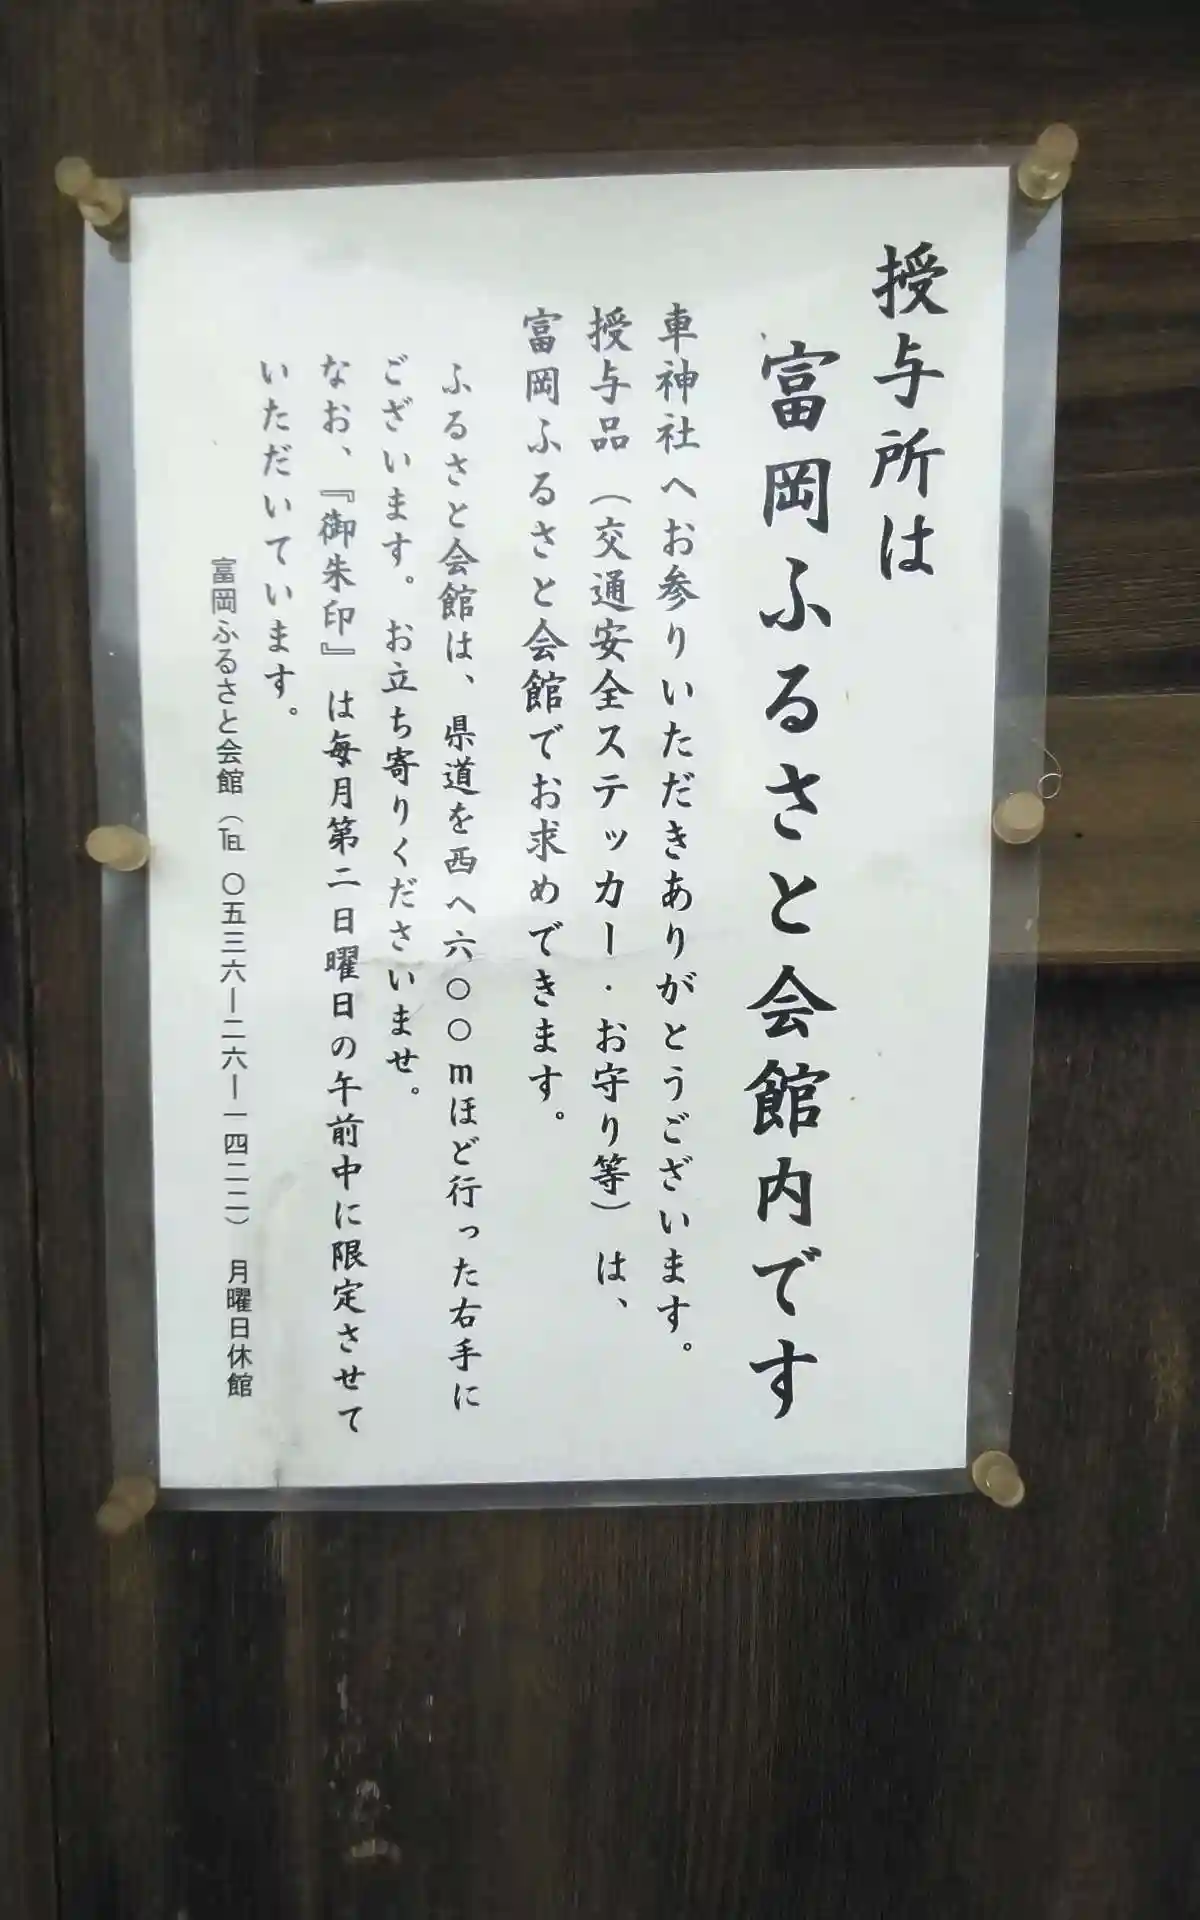 授与所は
富岡ふるさと会館内です
車神社へお参りいただきありがとうございます。
授与品（交通安全ステッカー・お守り等）は、
富岡ふるさと会館でお求めできます。
ふるさと会館は、県道を西へ六〇〇mほど行った右手に
ございます。お立ち寄りくださいませ。
なお、『御朱印』は毎月第二日曜日の午前中に限定させて
いただいています。
富岡ふるさと会館（℡ 〇五三六ー二六ー一四二二） 月曜日休館